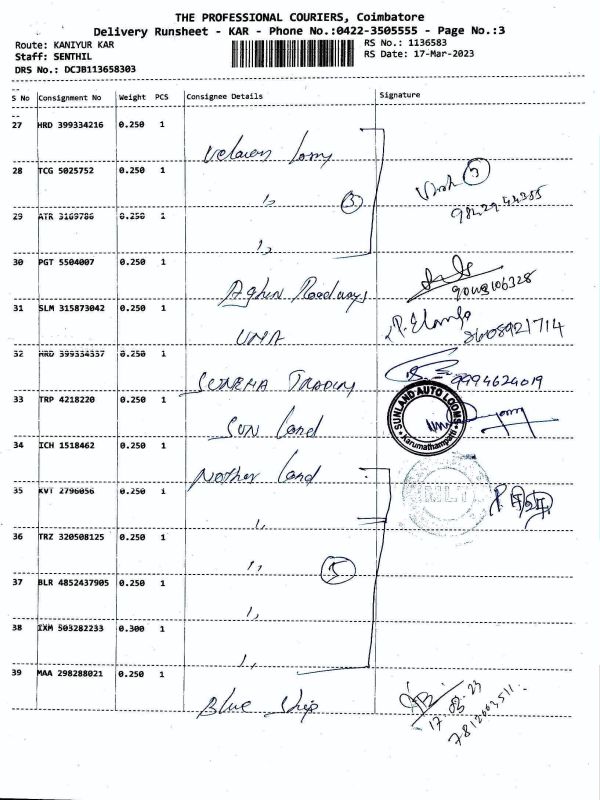 THE PROFESSIONAL COURIERS, Coimbatore
Delivery Runsheet - KAR - Phone No.:0422-3505555 - Page No.:3
Route: KANIYUR KAR
RS No.: 1136583
Staff: SENTHIL
RS Date: 17-Mar-2023
DRS No.: DCJB113658303
S No Consignment No Weight PCS Consignee Details Signature
27 HRD 399334216 0.250 1
28 TCG 5025752 0.250 1
,, 3
29 ATR 3169786 0.250 1
,,
30 PGT 5504007 0.250 1
Roadways
31 SLM 315873042 0.250 1
UMA
8608921714
32 HRD 399334337 0.250 1
9994624019
33 TRP 4218220 0.250 1
Sun Land
SUNLAND AUTO LOOMS
Karumathampatti
34 ICH 1518462 0.250 1
Nother Land
35 KVT 2796056 0.250 1
,,
36 TRZ 320508125 0.250 1
,, 5
37 BLR 4852437905 0.250 1
,,
38 IXM 503282233 0.300 1
,,
39 MAA 298288021 0.250 1
Blue Ship
17.03.23